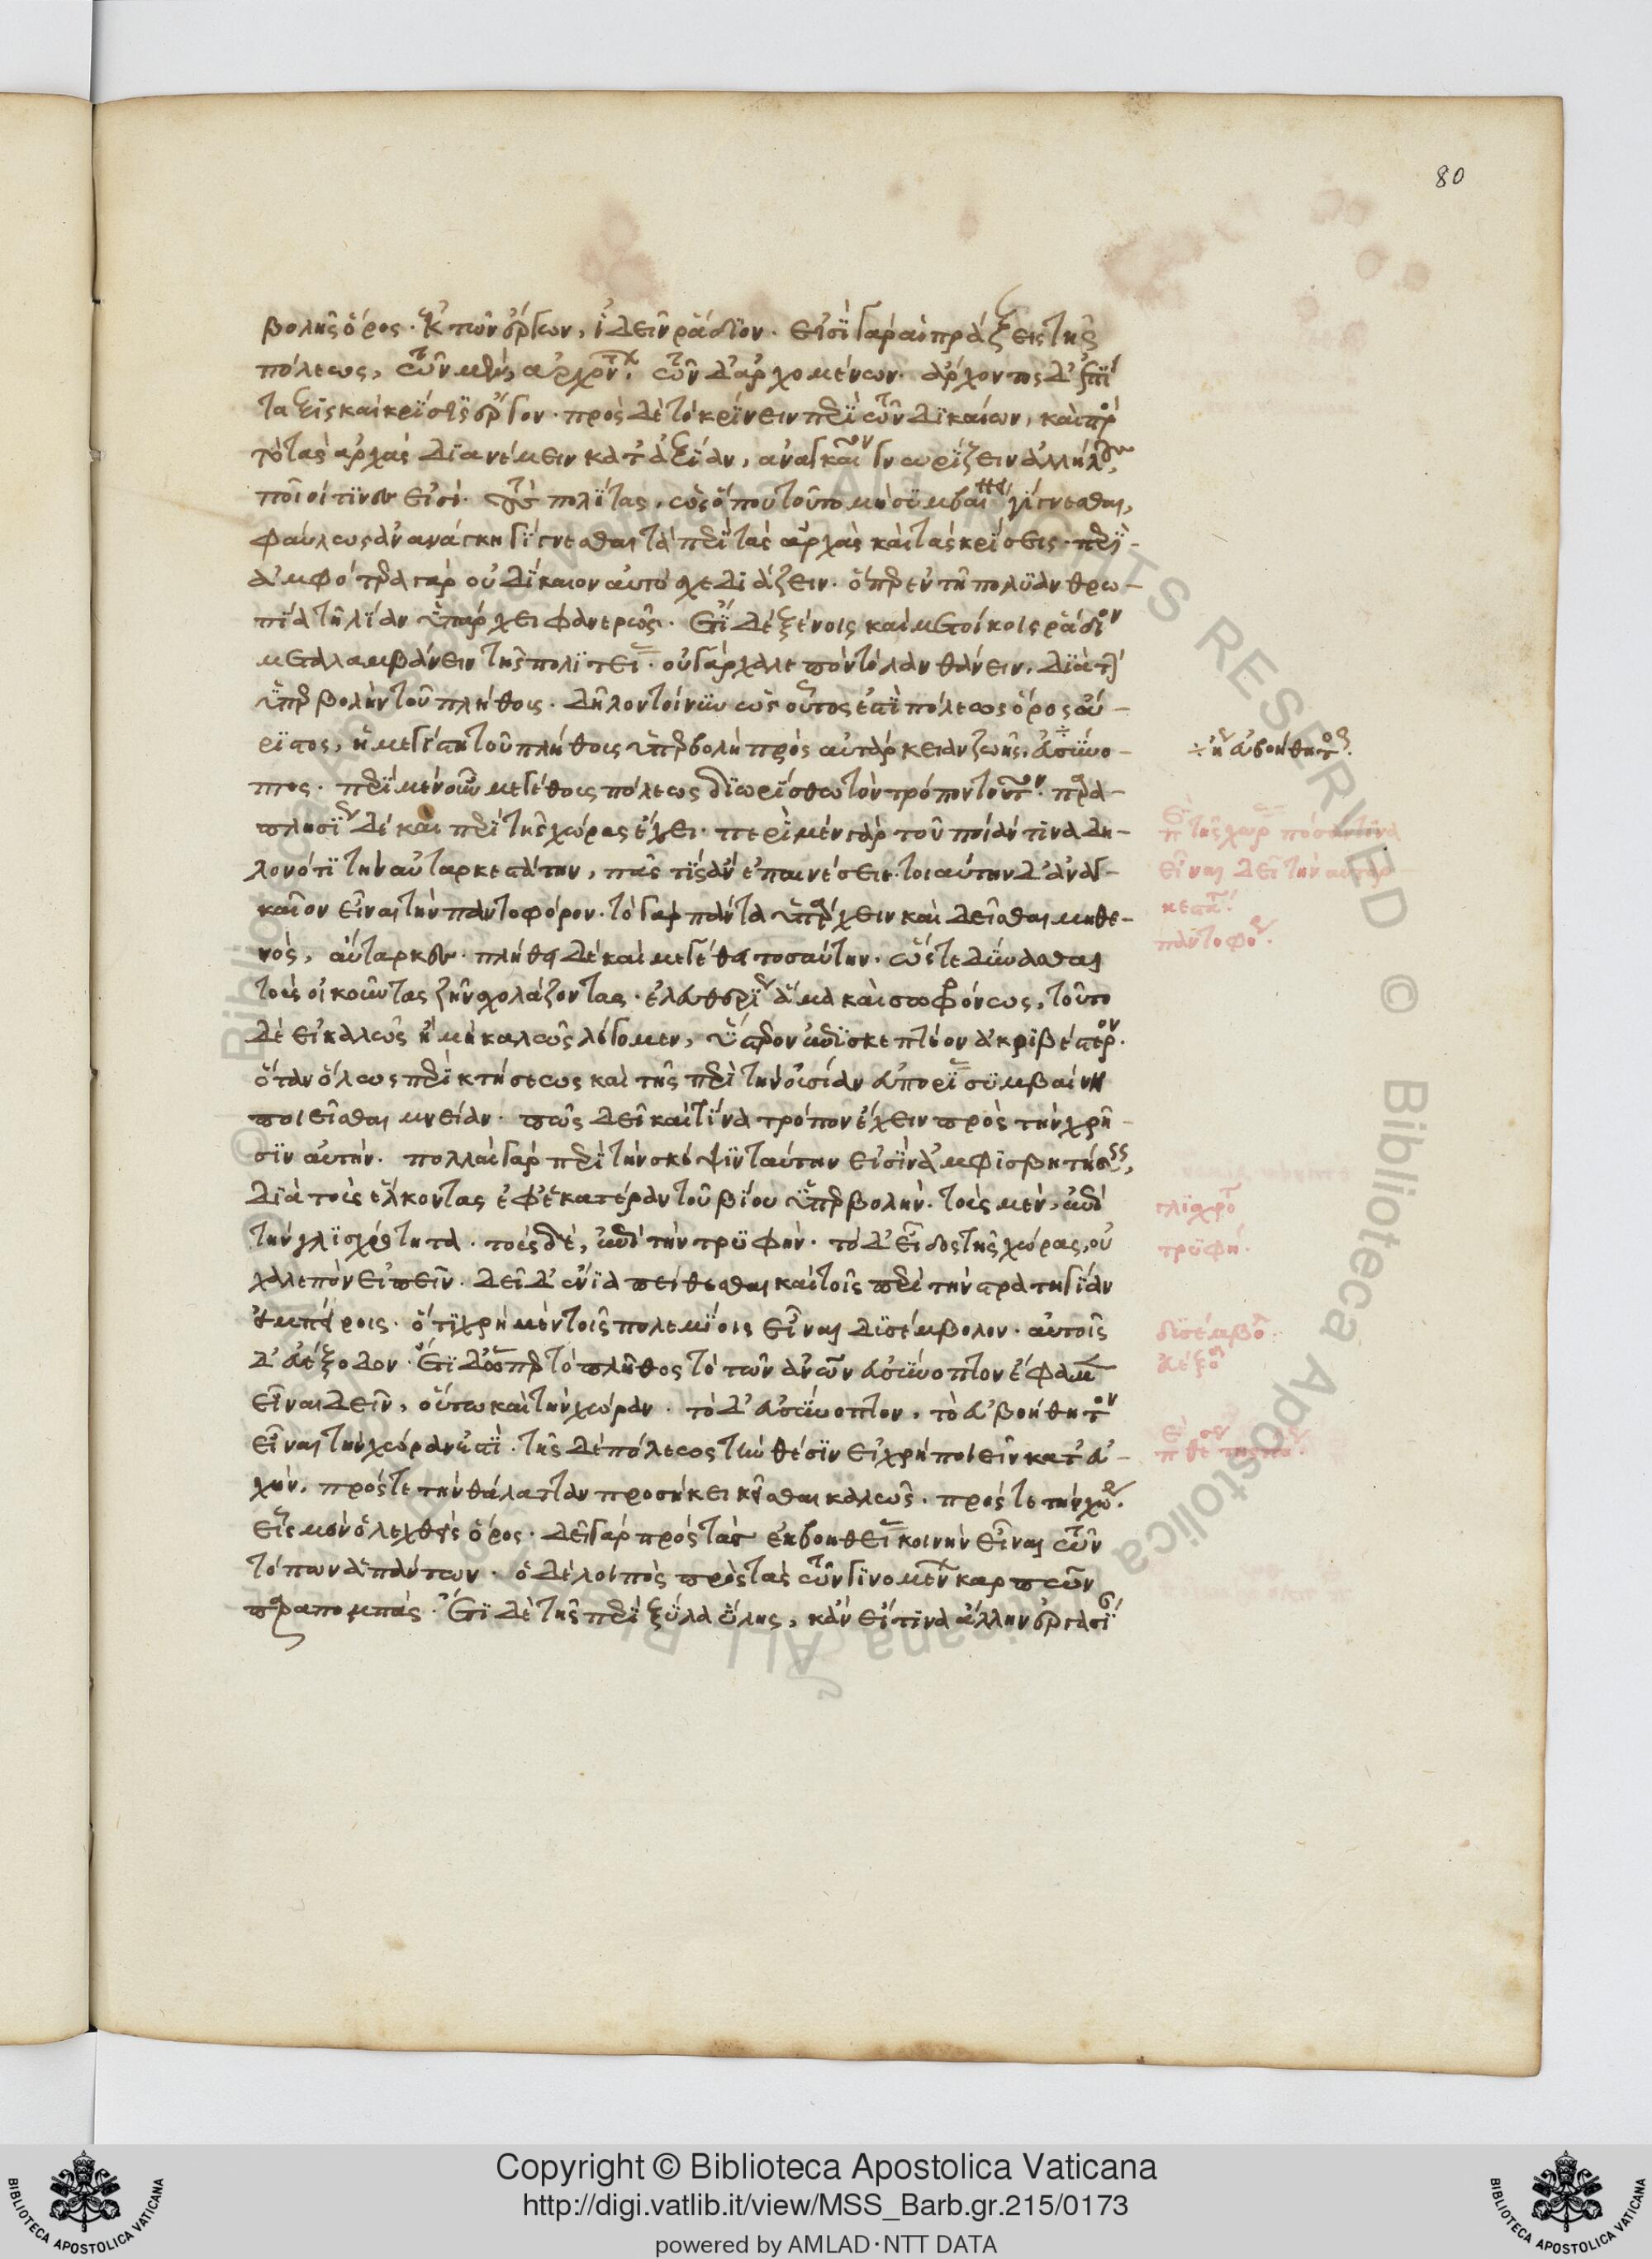 80
βολῆς ὅρος. ἐκ τῶν ἔργων, ἰδεῖν ῥάδιον. εἰσὶ γὰρ αἱ πράξεις τῆς
πόλεως, τῶν μὲν ἀρχόντων, τῶν δ' ἀρχομένων. ἄρχοντος δ' ἐπί
ταξις καὶ κρίσις ἔργον. πρὸς δὲ τὸ κρίνειν περὶ τῶν δικαίων, καὶ πρὸς
τὸ τὰς ἀρχὰς διανέμειν κατ' ἀξίαν, ἀναγκαῖον γνωρίζειν ἀλλήλους,
ποῖοί τινες εἰσὶ. τοὺς πολίτας, ὡς ὅπου τοῦτο μὴ συμβαίνει γίγνεσθαι,
φαύλως ἀνάγκη γίγνεσθαι τὰ περὶ τὰς ἀρχὰς καὶ τὰς κρίσεις. περὶ
ἀμφότερα γὰρ οὐ δίκαιον αὐτοσχεδιάζειν. ὅπερ ἐν τῇ πολυανθρω-
πίᾳ τῇ λίαν ὑπάρχει φανερῶς. ἔτι δὲ ξένοις καὶ μετοίκοις ῥάδιον
μεταλαμβάνειν τῆς πολιτείας. οὐ γὰρ χαλεπὸν τὸ λανθάνειν, διὰ τὴν
ὑπερβολὴν τοῦ πλήθους. δῆλον τοίνυν ὡς οὗτος ἐστὶ πόλεως ὅρος ἄ-
ριστος, ἡ μεγίστη τοῦ πλήθους ὑπερβολὴ πρὸς αὐτάρκειαν ζωῆς, εὐσύνο-
πτος. περὶ μὲν οὖν μεγέθους πόλεως διωρίσθω τὸν τρόπον τοῦτον. παρα-
πλησίως δὲ καὶ περὶ τῆς χώρας ἔχει. περὶ μὲν γὰρ τοῦ ποίαν τινὰ δη-
λονότι τὴν αὐταρκεστάτην, πᾶς τις ἂν ἐπαινέσειε. τοιαύτην δ' ἀναγ-
καῖον εἶναι τὴν παντοφόρον. τὸ γὰρ πάντα ὑπάρχειν καὶ δεῖσθαι μηθε-
νὸς, αὔταρκες. πλήθει δὲ καὶ μεγέθει τοσαύτην. ὥστε δύνασθαι
τοὺς οἰκοῦντας ζῆν σχολάζοντας. ἐλευθερίως ἅμα καὶ σωφρόνως, τοῦτο
δὲ εἰ καλῶς ἢ μὴ καλῶς λέγομεν, ὕστερον ἐπισκεπτέον ἀκριβέστερον.
ὅταν ὅλως περὶ κτήσεως καὶ τῆς περὶ τὴν οὐσίαν εὐπορίας συμβαίνῃ
ποιεῖσθαι μνείαν. πῶς δεῖ καὶ τίνα τρόπον ἔχειν πρὸς τὴν χρῆ-
σιν αὐτήν. πολλαὶ γὰρ περὶ τὴν σκέψιν ταύτην εἰσὶν ἀμφισβητήσεις,
διὰ τοὺς ἕλκοντας ἐφ' ἑκατέραν τοῦ βίου ὑπερβολήν. τοὺς μὲν, ἐπὶ
τὴν γλισχρότητα. τοὺς δὲ, ἐπὶ τὴν τρυφήν. τὸ δ' εἶδος τῆς χώρας, οὐ
χαλεπὸν εἰπεῖν. δεῖ δ' ἔνια πείθεσθαι καὶ τοῖς περὶ τὴν στρατηγίαν
ἐμπείροις. ὅτι χρὴ μὲν τοῖς πολεμίοις εἶναι δυσέμβολον. αὐτοῖς
δ' εὐέξοδον. ἔτι δ' ὥσπερ τὸ πλῆθος τὸ τῶν ἀνθρώπων εὐσύνοπτον ἔφαμεν
εἶναι δεῖν, οὕτω καὶ τὴν χώραν. τὸ δ' εὐσύνοπτον, τὸ εὐβοήθητον
εἶναι τὴν χώραν ἐστὶ. τῆς δὲ πόλεως τὴν θέσιν εἰ χρὴ ποιεῖν κατ' εὐ-
χὴν, πρός τε τὴν θάλατταν προσήκει κεῖσθαι καλῶς. πρός τε τὴν χώραν.
εἷς μὲν ὁ λεχθεὶς ὅρος. δεῖ γὰρ πρὸς τὰς ἐκβοηθείας κοινὴν εἶναι τῶν
τόπων ἁπάντων. ὁ δὲ λοιπὸς πρὸς τὰς τῶν γινομένων καρπῶν
παραπομπάς. ἔτι δὲ τῆς περὶ ξύλα ὕλης, κἂν εἴ τινα ἄλλην ἐργασί
ἢ εὐβοήθητος.
περὶ τῆς χώρας πόσην τινὰ
εἶναι δεῖ τὴν αὐταρ-
κεστάτην.
παντοφόρον.
γλισχρό
τρυφή.
δυσέμβολον.
εὐέξοδον
περὶ θέσεως τῆς πόλεως.
Copyright © Biblioteca Apostolica Vaticana
http://digi.vatlib.it/view/MSS_Barb.gr.215/0173
powered by AMLAD·NTT DATA
BIBLIOTECA APOSTOLICA VATICANA
BIBLIOTECA APOSTOLICA VATICANA